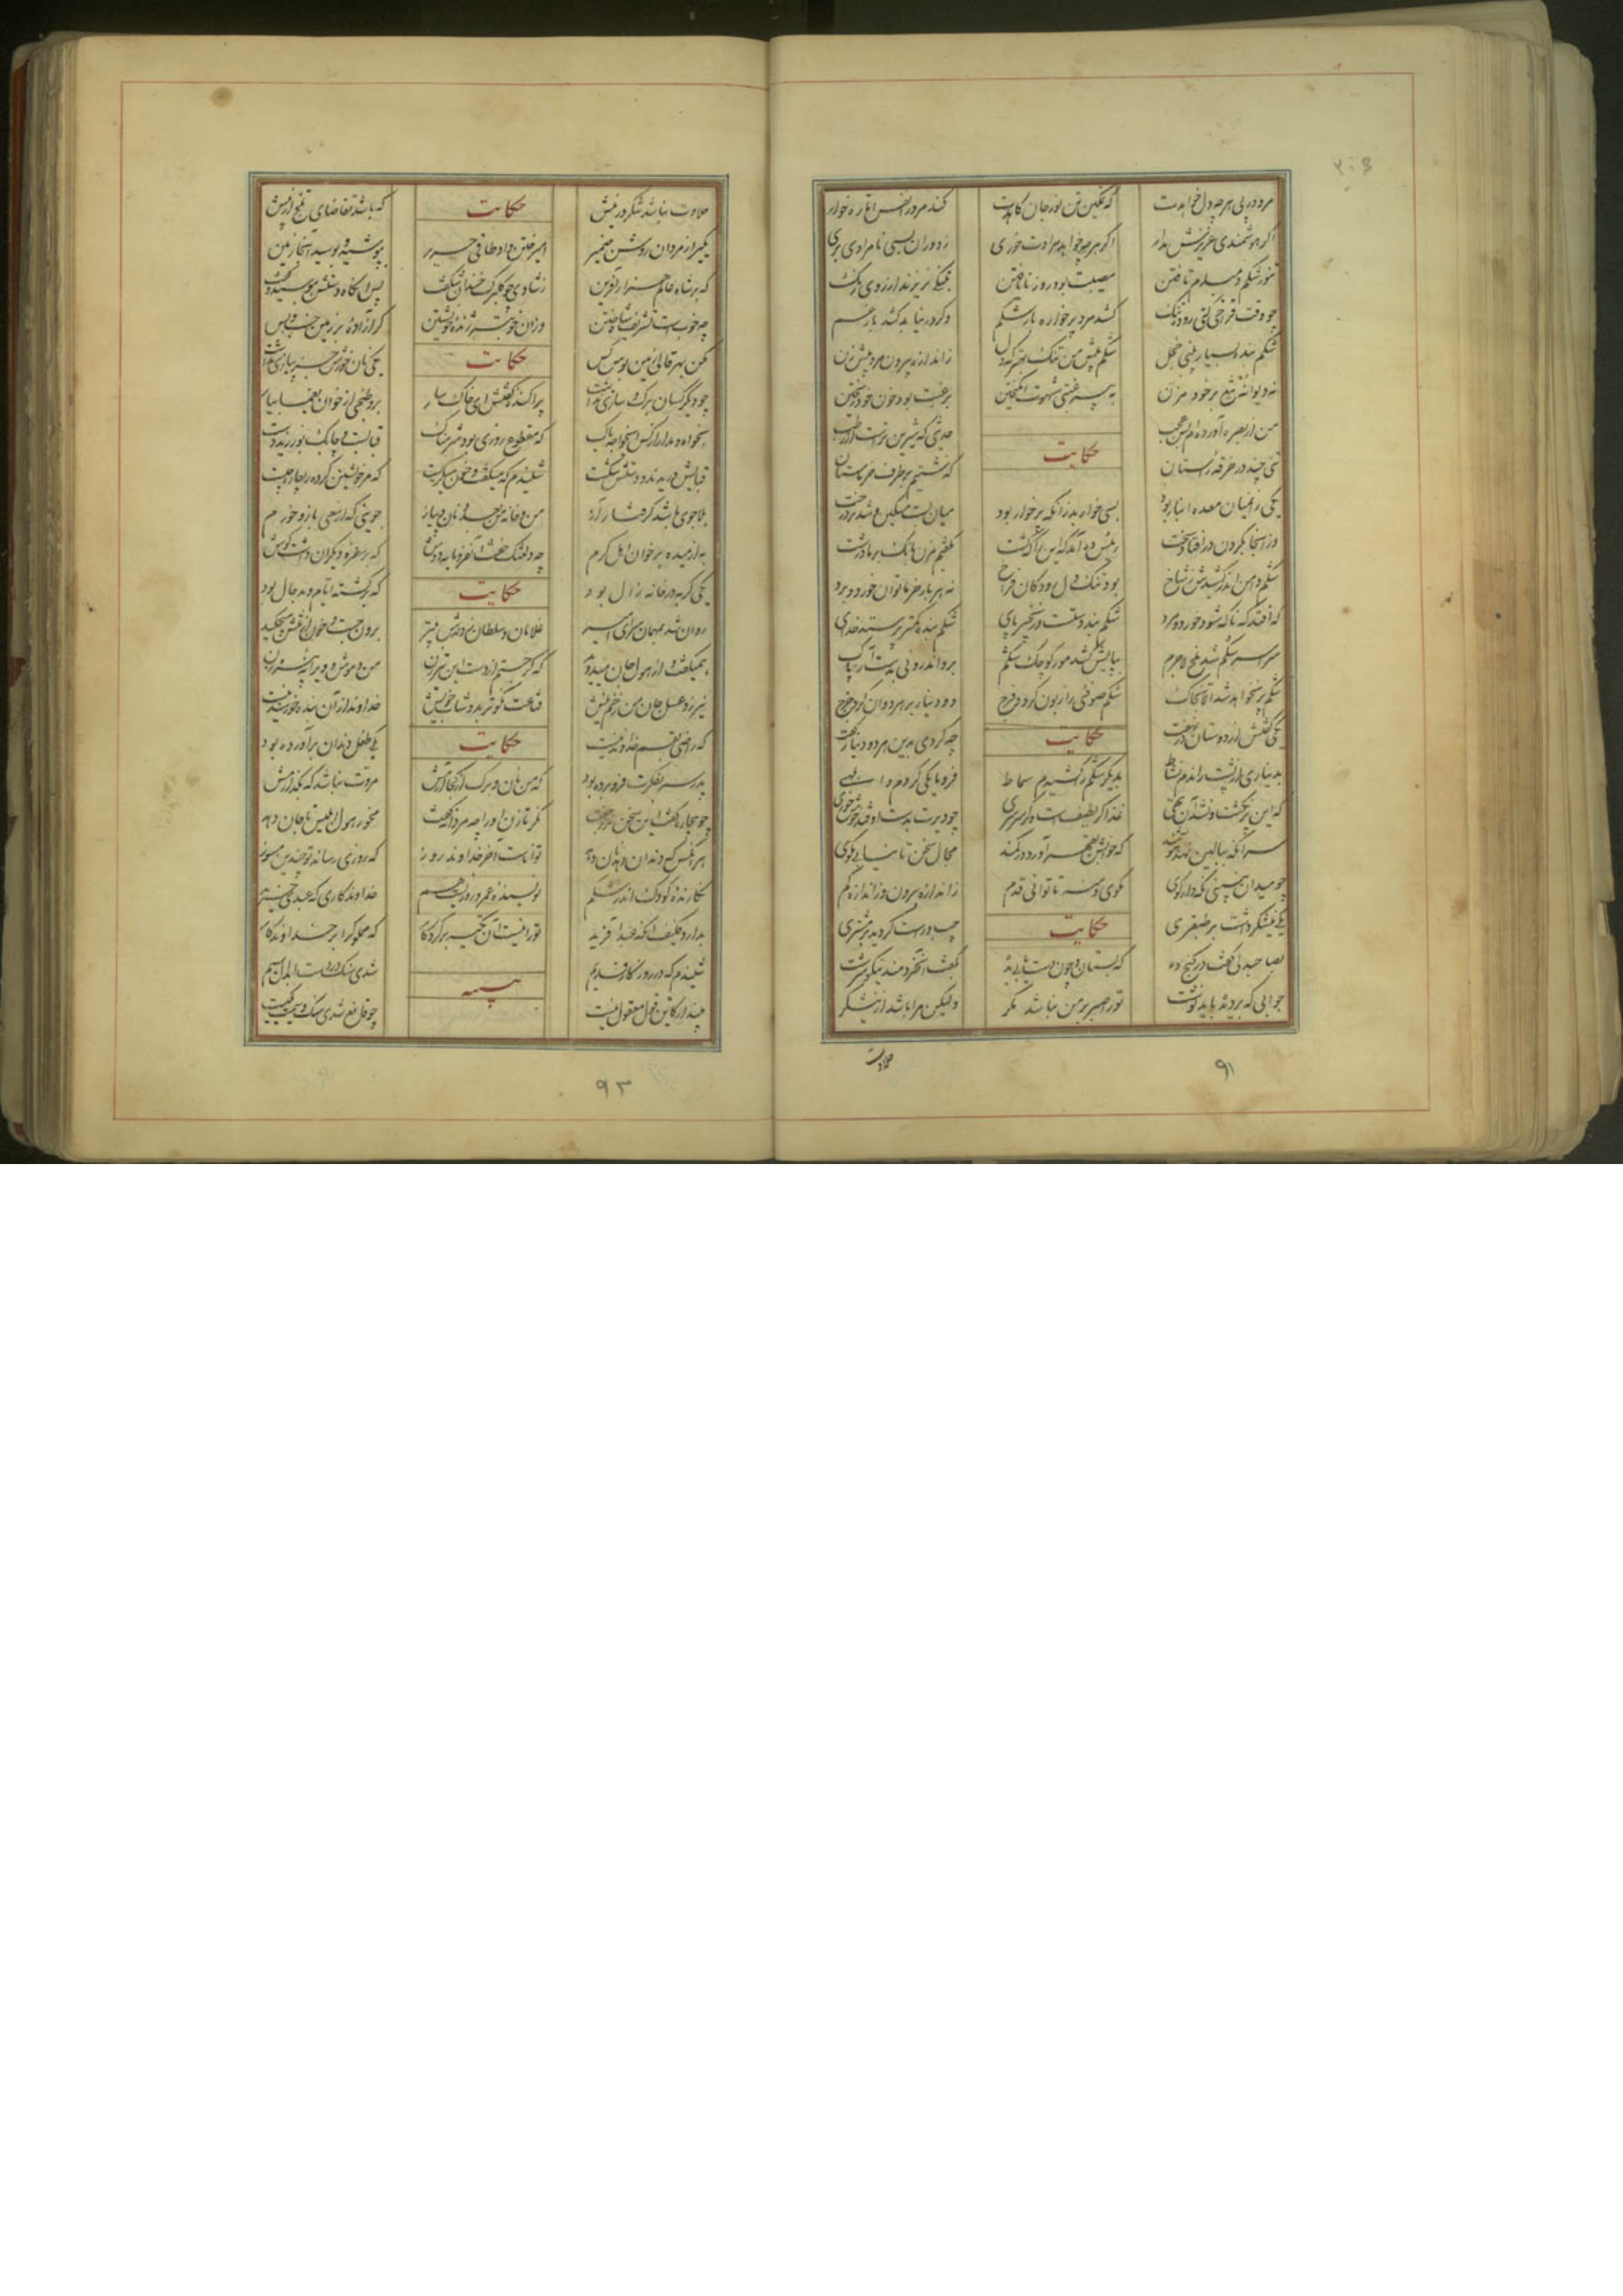 مرو در پی هر چه دل خواهدت
که تمکین تن نور جان کاهدت
کند مرد را نفس اماره خوار
اگر هوشمندی عزیزش مدار
اگر هر چه خواهد مرادت خوری
ز دوران بسی نامرادی بری
تنور شکم دمبدم تافتن
مصیبت بود روز نایافتن
بتنگی بریزاندت روی رنگ
چو وقت فراخی کنی روده تنگ
کشد مرد پرخواره بار شکم
وگر درنیابد کشد بار غم
شکم بنده بسیار بینی خجل
شکم پیش من تنگ بهتر که دل
ز اندازه بیرون مرو پیش زن
نه دیوانه تیغ بر خود مزن
به بیرغبتی شهوت انگیختن
برغبت بود خون خود ریختن
حکایت
من از بصره آورده ام بس عجب
حدیثی که شیرین ترست از رطب
تنی چند در خرقه راستان
گذشتیم بر طرف خرماستان
یکی زانمیان معده انبار بود
بسی خوار بد زانکه پرخوار بود
میان بست مسکین و شد بر درخت
وز آنجا بگردن درافتاد سخت
رئیس ده آمد که این را که کشت
بگفتم مزن بانگ بر ما درشت
شکم دامن اندر کشیدش ز شاخ
بود تنگ دل رودگان فراخ
نه هر بار خرما توان خورد و برد
که افتد که ناگه شود خورد و مرد
شکم بند دستست و زنجیر پای
شکم بنده کمتر پرستد خدای
سراسر شکم شد ملخ لاجرم
بپایش کشد مور کوچک شکم
برو اندرونی بدست آر پاک
شکم پر نخواهد شد الا بخاک
شکم صوفئی را زبون کرد و فرج
دو دینار بر هر دوان کرد خرج
حکایت
یکی گفتش از دوستان در نهفت
چه کردی بدین هر دو دینار گفت
بدیناری از پشت راندم نشاط
بدیگر شکم را کشیدم سماط
فرومایگی کردم و ابلهی
که این بر نگشت و نشد آن تهی
غذا گر لطیفست وگر سرسری
چو دیرت بدست اوفتد خوش خوری
سر آنگه ببالین نهد هوشمند
که خوابش بقهر آورد در کمند
مجال سخن تا نیابی مگوی
چو میدان نبینی نگه دار گوی
مگوی و منه تا توانی قدم
ز اندازه بیرون وز اندازه کم
حکایت
یکی نیشکر داشت بر طبقری
چپ و راست گردید بر مشتری
بصاحبدلی گفت در کنج ده
که بستان و چون دست یابی بده
بگفت آنخردمند نیکو سرشت
جوابی که بر دیده باید نوشت
تو را صبر بر من نباشد مگر
ولیکن مرا باشد از نیشکر
حلاوت
۹۱
حلاوت نباشد شکر در نیش
که باشد تقاضای تلخ از پیش
حکایت
یکی را ز مردان روشن ضمیر
امیر ختن داد طاقی حریر
بپوشید و بوسید آنجا زمین
که بر شاه عالم هزار آفرین
ز شادی چو گلبرگ خندان شکفت
پس آنگاه دستش ببوسید و گفت
چه خوبست تشریف شاه ختن
وزان خوبتر ژنده خویشتن
گر آزاده بر زمین خسب و بس
مکن بهر قالی زمین بوس کس
حکایت
یکی نان خورش جز پیازی نداشت
چو دیگر کسان برگ و سازی نداشت
پراکنده گفتش ای خاکسار
برو طبخی از خوان یغما بیار
بخواه و مدار از کس ای خواجه باک
که مقطوع روزی بود شرمناک
قبا بست و چابک نوردید دست
قبایش دریدند و دستش شکست
شنیدم که میگفت و خون میگریست
که مر خویشتن کرده را چاره چیست
بلاجوی باشد گرفتار آز
من و خانه من بعد و نان و پیاز
جوینی که از سعی بازو خورم
به از میده بر خوان اهل کرم
چه دلتنگ خفت آن فرومایه دوش
که بر سفره دیگران داشت گوش
حکایت
یکی گربه در خانه زال بود
که برگشته ایام و بد حال بود
روان شد بمهمان سرای امیر
غلامان سلطان زدندش بتیر
برون جست و خون از تنش میچکید
همیگفت و از هول جان میدوید
که گر جستم از دست این تیرزن
من و موش و ویرانه پیرزن
نیرزد عسل جان من زخم نیش
قناعت نکوتر بدوشاب خویش
خداوند از آن بنده خورسند نیست
که راضی بقسم خداوند نیست
حکایت
یکی طفل دندان برآورده بود
پدر سر بفکرت فرو برده بود
که من نان و برگ از کجا آرمش
مروت نباشد که بگذارمش
چو بیچاره گفت این سخن نزد جفت
نگر تا زن او را چه مردانه گفت
مخور هول ابلیس تا جان دهد
هر آنکس که دندان دهد نان دهد
تواناست آخر خداوند روز
که روزی رساند تو چندین مسوز
نگارنده کودک اندر شکم
نویسنده عمر و روزیست هم
خداوندگاری که عبدی خرید
بدارد فکیف آنکه عبد آفرید
تو را نیست آن تکیه بر کردگار
که مملوک را بر خداوندگار
شنیدم که در روزگار قدیم
شدی سنگ در دست ابدال سیم
مپندار کاین قول معقول نیست
چو قانع شدی سنگ و سیمت یکیست
۹۳